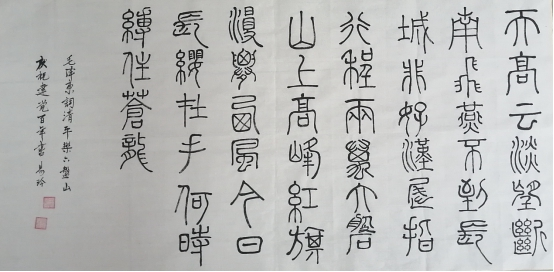 天高云淡望斷
南飛燕不到長
城非好漢屈指
行程兩萬六盤
山上高峰紅旗
漫卷西風今日
長纓在手何時
縛住蒼龍
毛澤東詞清平樂六盤山
慶祝建党百年書易玲